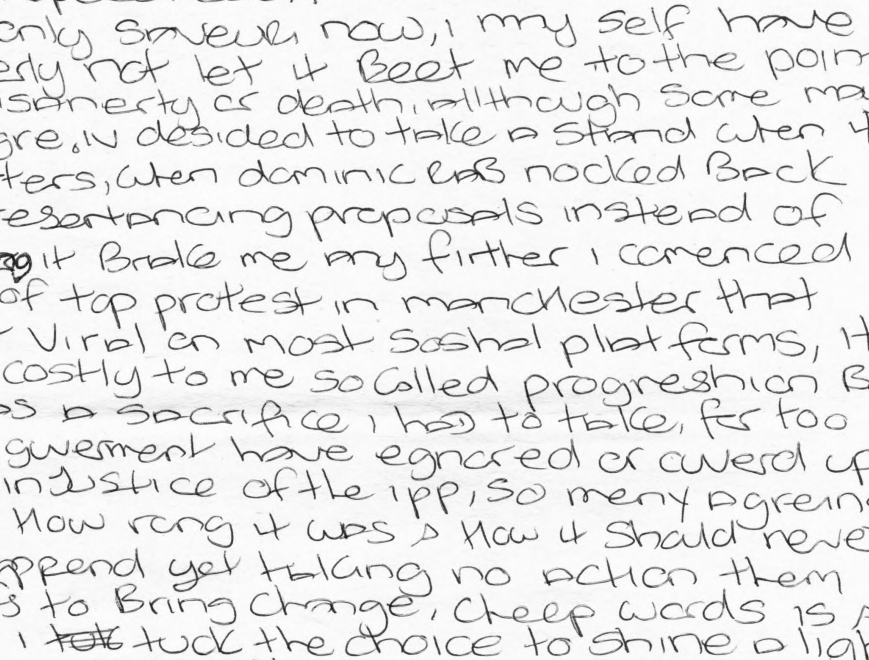 only Saveur now, i my self have
erly not let it Beet me to the poin
isonerty or death, allthough Some ma
gre. iv desided to take a Stand when it
ters, when dominic RaB nocked Back
esentancing proposals instead of
it Brake me any firther i comenced
of top protest in manchester that
Viral on most Soshal plat forms, it
costly to me so Called progreshion B
as a Sacrifice i had to take, for too
guverment have egnored or cuverd up
injustice of the ipp, so meny agreing
How rong it was & How it Should neve
append yet taking no action them
s to Bring Change, Cheep words is
i tuck the choice to shine a ligh